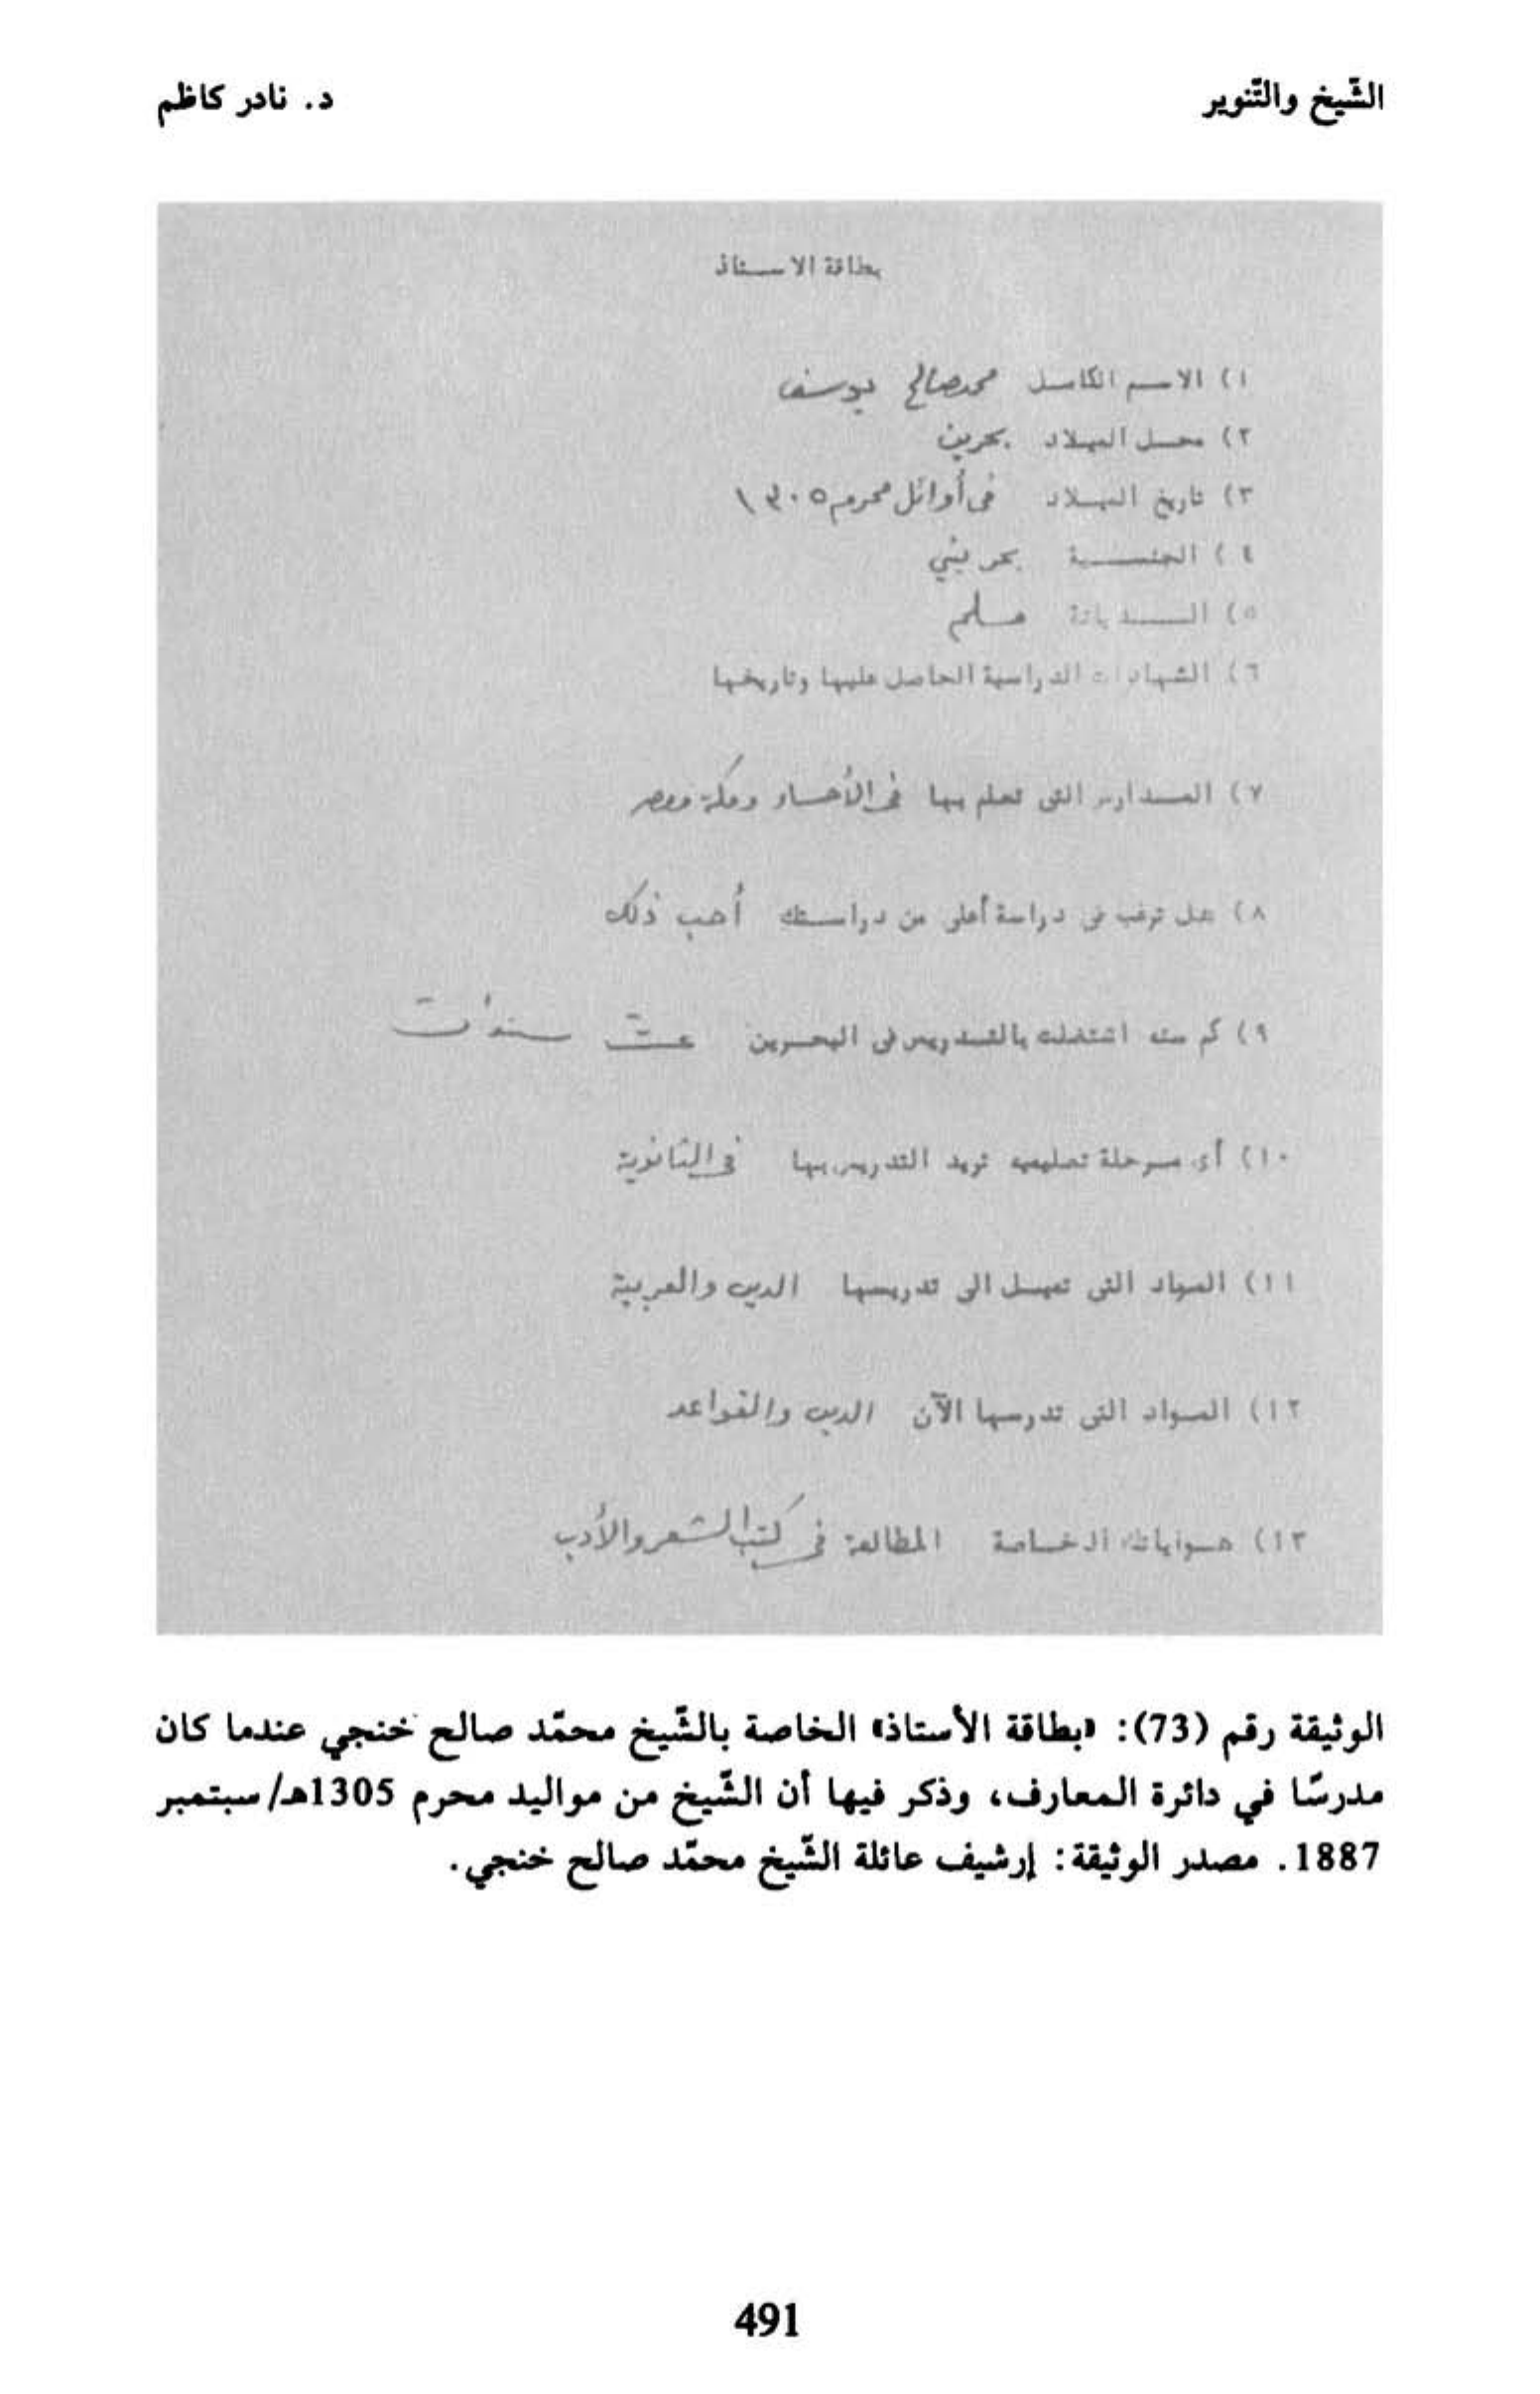 الشّيخ والتّنوير
د. نادر كاظم
بطاقة الاستاذ
١) الاسم الكامل محمد صالح يوسف
٢) محل الميلاد بحرين
٣) تاريخ الميلاد فى أوائل محرم ١٣٠٥
٤) الجنسية بحريني
٥) الديانة مسلم
٦) الشهادات الدراسية الحاصل عليها وتاريخها
٧) المدارس التى تعلم بها فى الأحساء ومكة ومصر
٨) هل ترغب فى دراسة أعلى من دراستك أحب ذلك
٩) كم سنه اشتغلت بالتدريس فى البحرين سنوات
١٠) أى مرحلة تعليميه تريد التدريس بها فى الثانوية
١١) المواد التى تميل الى تدريسها الدين والعربية
١٢) المواد التى تدرسها الآن الدين والقواعد
١٣) هواياتك الخاصة المطالعة فى كتب الشعر والأدب
الوثيقة رقم (73): «بطاقة الأستاذ» الخاصة بالشّيخ محمّد صالح خنجي عندما كان
مدرسًا في دائرة المعارف، وذكر فيها أن الشّيخ من مواليد محرم 1305هـ/ سبتمبر
1887. مصدر الوثيقة: إرشيف عائلة الشّيخ محمّد صالح خنجي.
491